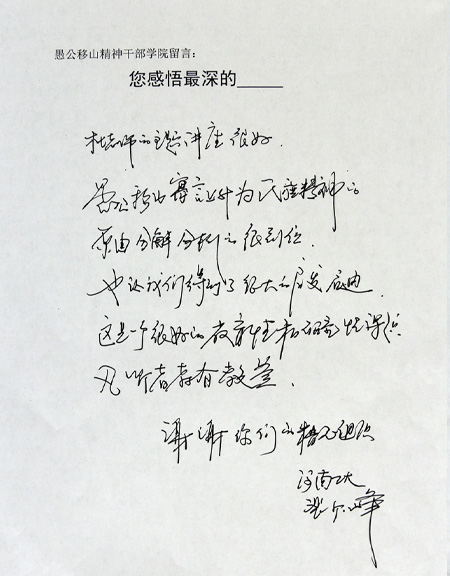 愚公移山精神干部学院留言：
您感悟最深的
杜老师的主题讲座很好.
愚公移山寓言上升为民族精神的
原由分解分析的很到位.
也让我们得到了很大的启发启迪.
这是一个很好的教育性和研究性课题
凡听者存有教益.
谢谢你们的精心组织
河南大